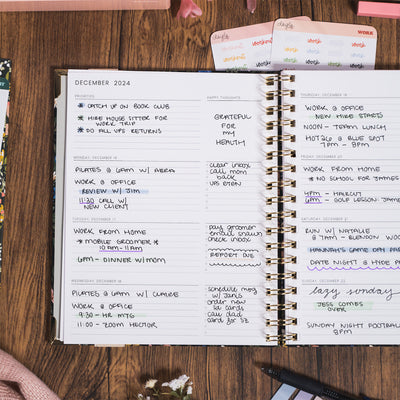 DECEMBER 2024
PRIORITIES
* CATCH UP ON BOOK CLUB
* HIRE HOUSE SITTER FOR
WORK TRIP
* DO ALL UPS RETURNS
HAPPY THOUGHTS
GRATEFUL
FOR
MY
HEALTH
MONDAY, DECEMBER 16
PILATES @ 6AM W/ ABRA
WORK @ OFFICE
REVIEW W/ JIM
11:30 CALL W/
NEW CLIENT
clear inbox
call mom
back
UPS
TUESDAY, DECEMBER 17
WORK FROM HOME
* MOBILE GROOMER *
10AM-11AM
6PM - DINNER W/ MOM
pay groomer
email shawn
check inbox
REPORT DUE
WEDNESDAY, DECEMBER 18
PILATES @ 6AM W/ CLAIRE
WORK @ OFFICE
9:30 - HR MTG
11:00 - ZOOM HECTOR
schedule mtg
w/ Janis
order new
cards
call dad
card for
THURSDAY, DECEMBER 19
WORK @ OFFICE
NEW HIRE STARTS
NOON - TEAM LUNCH
@ BLUE SPOT
7PM - 9PM
FRIDAY, DECEMBER 20
WORK FROM HOME
* NO SCHOOL FOR JAMES
4PM - HAIRCUT
6PM - GOLF LESSON: JAMES
SATURDAY, DECEMBER 21
RUN W/ NATALIE
@ 7AM - BLENDON WOOD
HANNAH'S GAME DAY
DATE NIGHT @ HYDE
SUNDAY, DECEMBER 22
lazy sunday
JESS COMES
OVER
SUNDAY NIGHT FOOTBALL
8PM
WORK
work
work
work